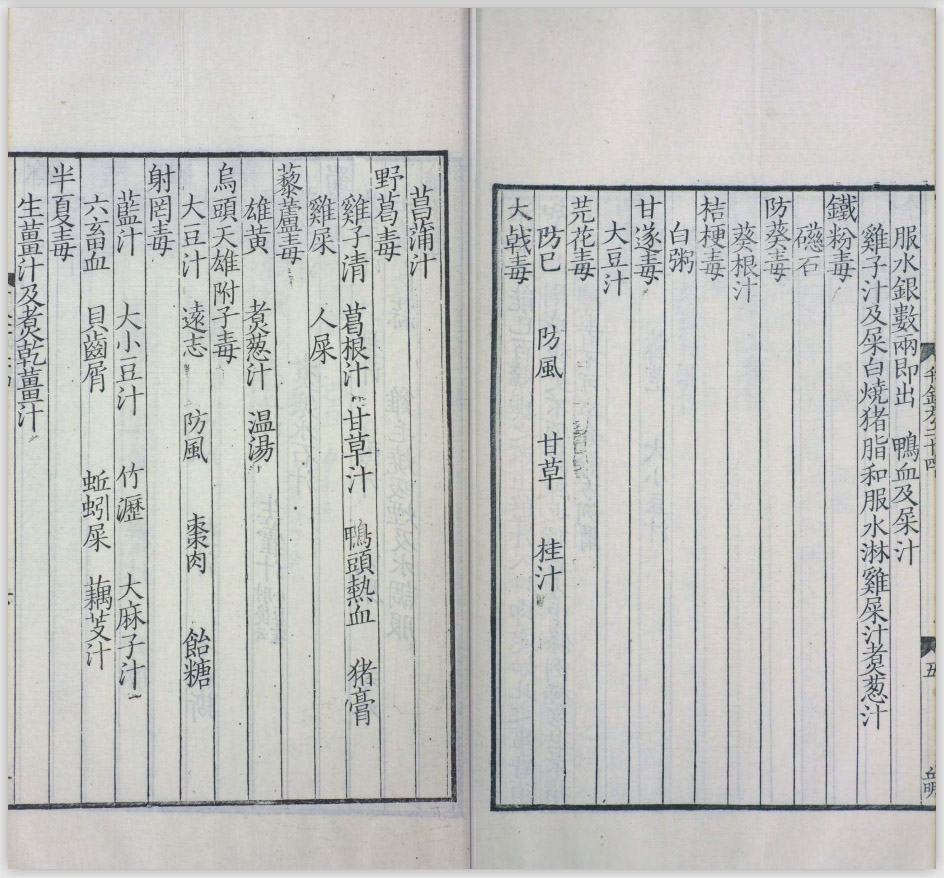 服水銀數兩即出 鴨血及屎汁
雞子汁及屎白燒猪脂和服水淋雞屎汁煑葱汁
鐵粉毒
磁石
防葵毒
葵根汁
桔梗毒
白粥
甘遂毒
大豆汁
芫花毒
防巳 防風 甘草 桂汁
大戟毒
菖蒲汁
野葛毒
雞子清 葛根汁 甘草汁 鴨頭熱血 猪膏
雞屎 人屎
藜蘆毒
雄黄 煑葱汁 温湯
烏頭天雄附子毒
大豆汁 遠志 防風 棗肉 飴糖
射罔毒
藍汁 大小豆汁 竹瀝 大麻子汁
六畜血 貝齒屑 蚯蚓屎 藕芰汁
半夏毒
生薑汁及煑乾薑汁
五